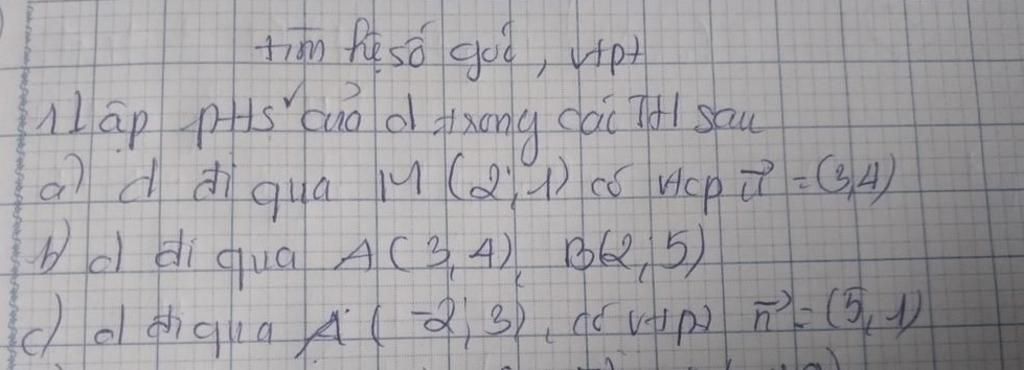 tìm hệ số góc, vtpt
1 Lập ptts của d trong các TH sau
a) d đi qua M (2; 1) có vtcp u⃗ = (3, 4)
b) d đi qua A (3, 4), B(2; 5)
c) d đi qua A (-2; 3), có vtpt n⃗ = (5, 1)